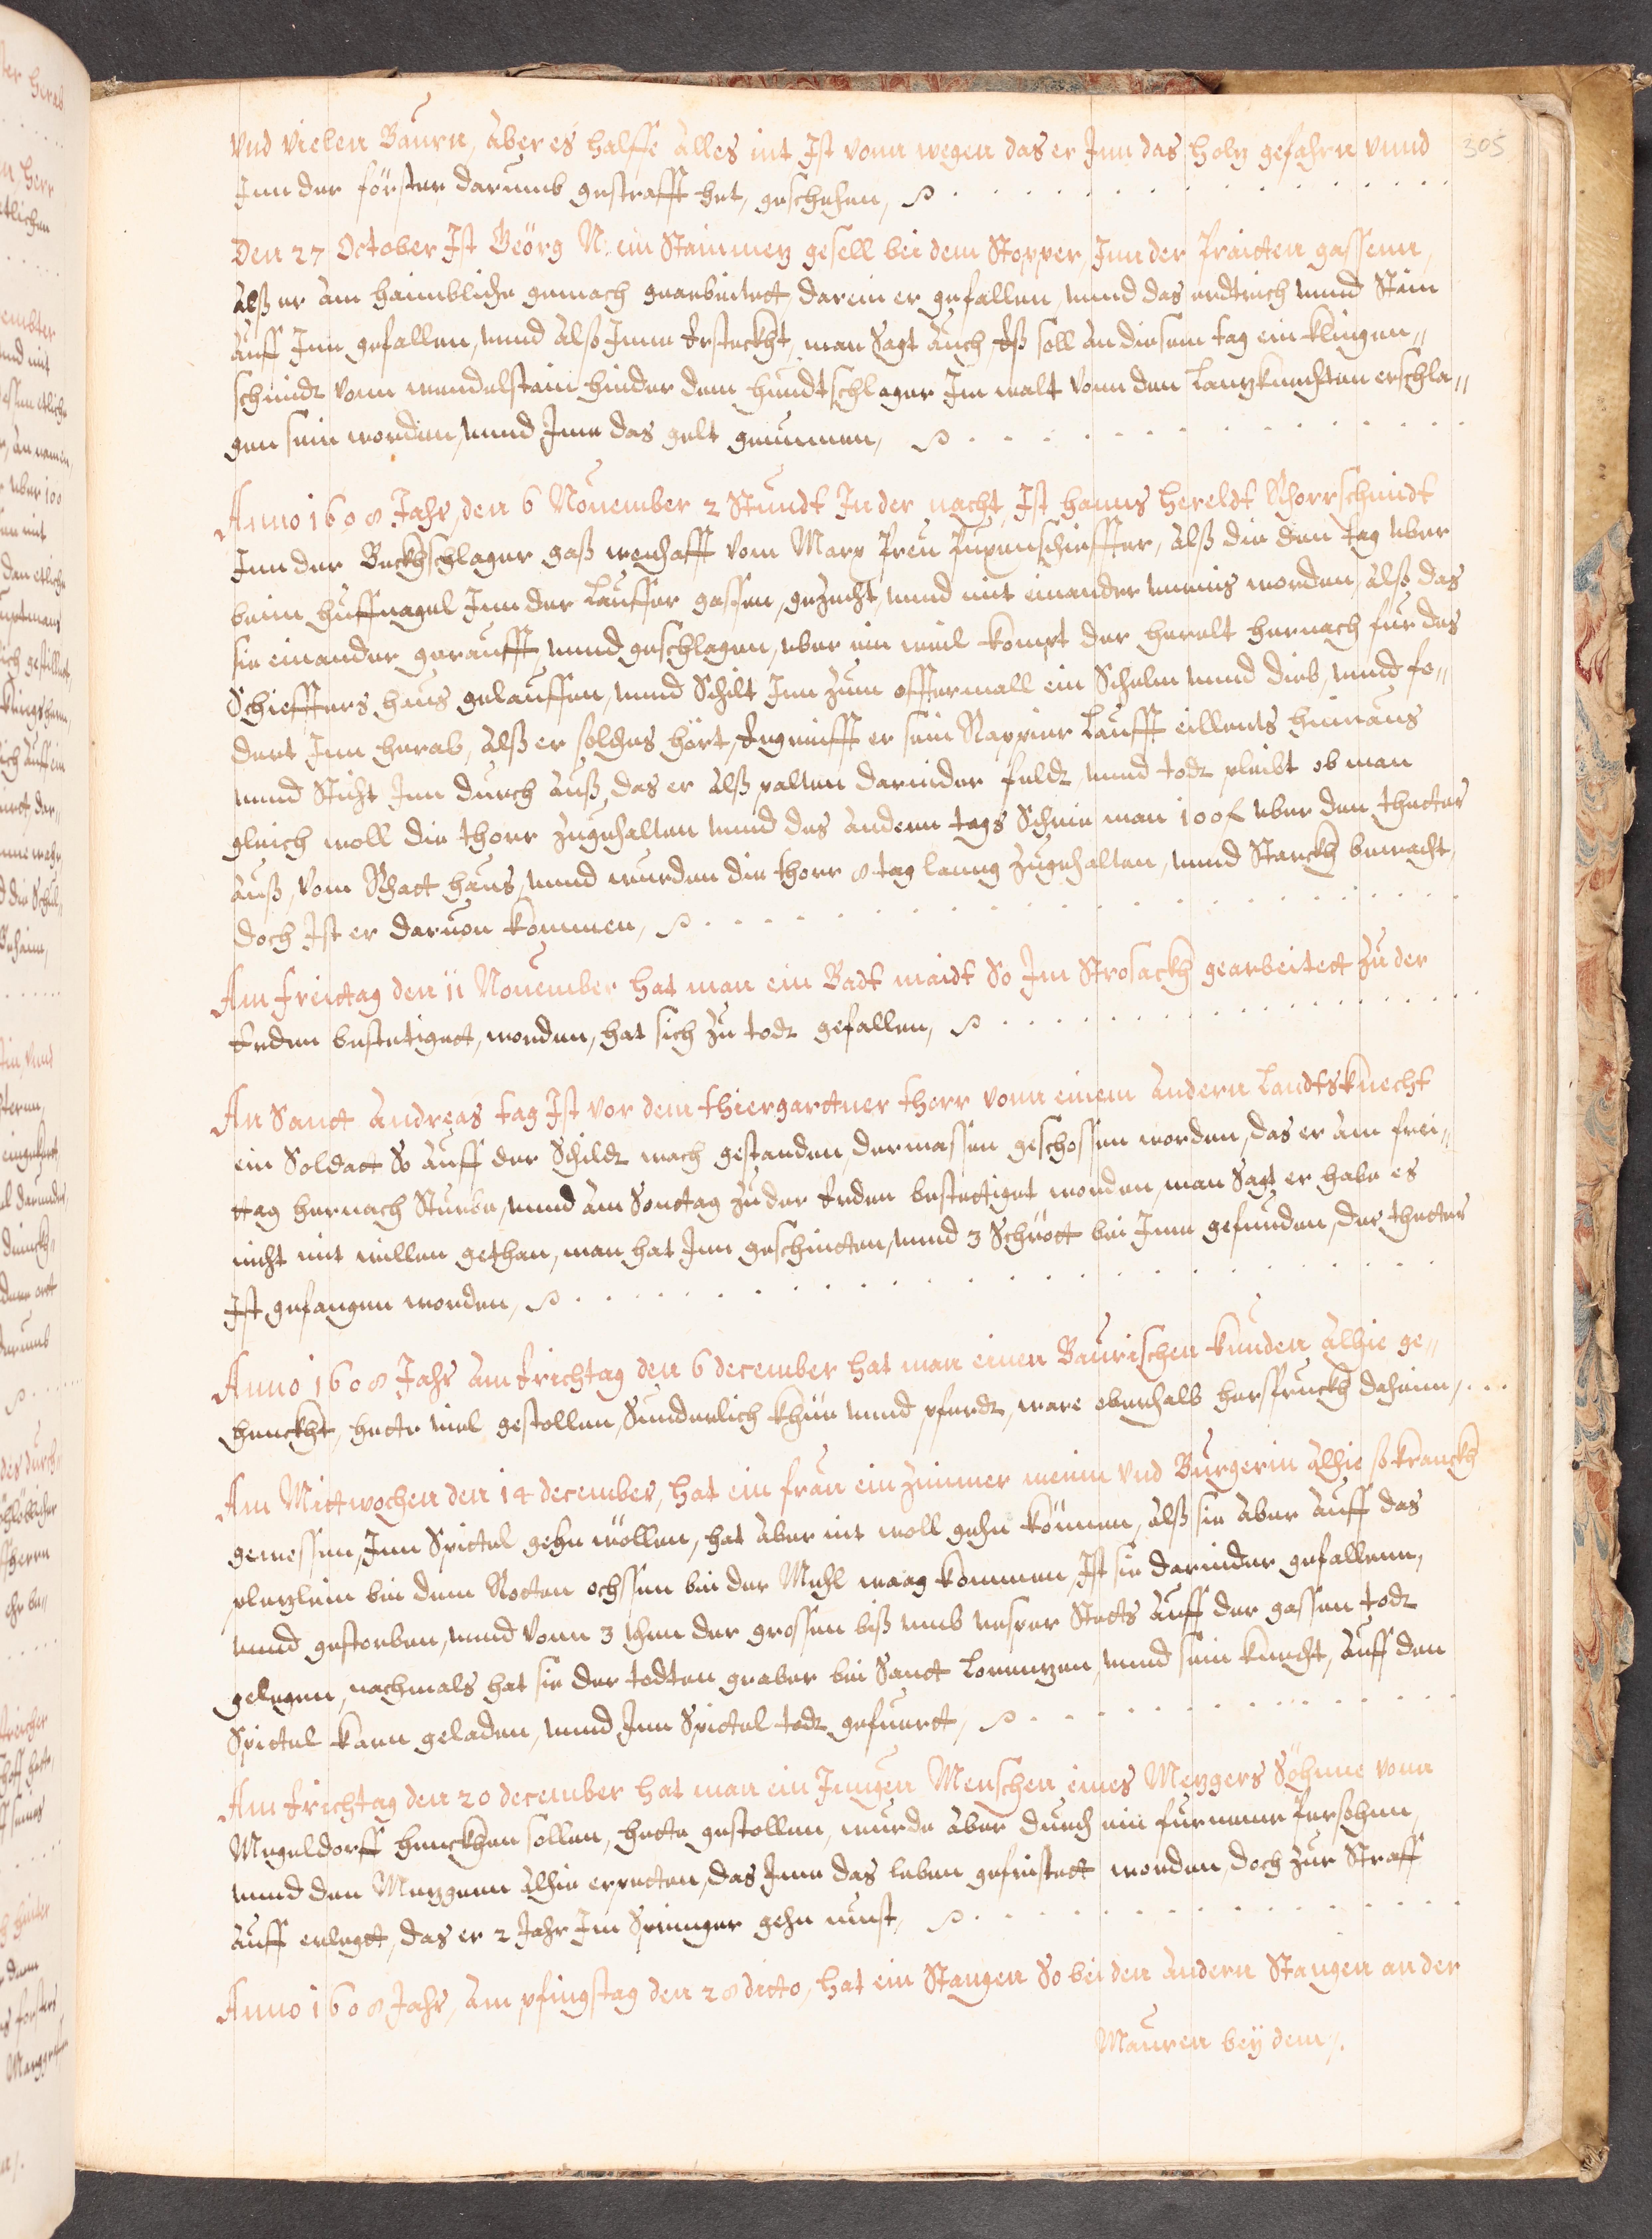 305
Vnd vielen Baurn, aber es halffe alles nit Ist vonn wegen das er Jnn das holtz gefahrn vnnd
Jnn der förster darumb gestrafft het, geschehen,
Den 27 October Ist Geörg N: ein Stainmetz gesell bei dem Stopper, Jnn der Praitten gassenn,
Alß er am haimbliche gemach gearbeitett, darein er gefallen, vnnd das erdtrich vnnd Stain
auff Jnn gefallen, vnnd alß Jnne ersteckht, man sagt auch, Eß soll an diesem tag ein klingen„
schmidt vonn wendelstain hinder dem hundtschlager Jm walt vonn den lantzknechten erschla„
gen sein worden, vnnd Jme das gelt genummen,
Anno 1608 Jahr, den 6 Nouember 2 Stundt Jn der nacht, Ist hanns hereldt Rhorrschmidt
Jnn der Beckhschlager gaß wonhafft vom Marx Preu Puxenschieffter, alß die den tag vber
beim huffnagel Jnn der Lauffer gassen, gezecht, vnnd mit einander vneins worden, alß das
sie einander geraufft, vnnd geschlagen, vber ein weil kompt der herelt hernach für das
Schieffters haus gelauffen, vnnd Schilt Jnn zum offtermall ein Schelm vnnd dieb, vnnd fo„
dert Jnn herab, alß er solches hört, Ergreifft er sein Rappier Laufft eillents hinnaus
vnnd Sticht Jnn durch auß, das er alß palten darnider feldt, vnnd todt pleibt ob man
gleich woll die thorr zugehalten vnnd des andern tags Schrie man 100 f vber den thetter
auß, vom Rhatt haus, vnnd wurden die thorr 8 tag lanng zugehalten, vnnd Starckh bewacht,
doch Ist er daruon kommen,
Am freittag den 11 Nouember hat man ein Badt maidt So Jm Strosackh gearbeitett zu der
Erden bestetigett, worden, hat sich zu todt gefallen,
An Sanct Andreas tag Ist vor dem thiergarttner thorr vonn einem andern Landtsknecht
ein Soldatt So auff der Schildt wach gestanden, dermassen geschossen worden, das er am frei„
ttag hernach Sturbe, vnnd am Sonttag zu der Erden bestettiget worden, man sagt er habe es
nicht mit willen gethan, man hat Jnn geschnitten, vnnd 3 Schrött bei Jme gefunden, der thetter
Ist gefangen worden,
Anno 1608 Jahr am Erichtag den 6 december hat man einen Baurischen kunden alhie ge„
henckht, hette viel gestollen, Sunderlich khüe vnnd pferdt, ware oberhalb herspruckh daheim,
Am Mittwochen den 14 december, hat ein frau ein zimmer menin Vnd Burgerin alhie so kranckh
gewessen, Jnn Spittal gehn wöllen, hat aber nit woll gehn können, alß sie aber auff das
pletzlein bei dem Rotten ochssen bei der Mehl waag kommen, Ist sie darnider gefallenn,
vnnd gestorben, vnnd vonn 3 vhrn der grossen biß vmb vesper Stetts auff der gassen todt
gelegen, nachmals hat sie der todten graber bei Sanct Lorentzen, vnnd sein knecht, auff den
Spittal karn geladen, vnnd Jnn Spittal todt gefuertt,
Am Erichtag den 20 december hat man ein Jungen Menschen eines Metzgers Söhnne vonn
Mögeldorff henckhen sollen, hette gestollen, wurde aber durch ein furneme Persohnn,
vnnd den Metzgern alhie erpetten, das Jme das leben gefristett worden, doch zur Straff
auff erlegtt, das er 2 Jahr Jm Springer gehn must,
Anno 1608 Jahr, am pfingstag den 28 ditto, hat ein Stangen So bei den andern Stangen an der
Mauren beÿ dem